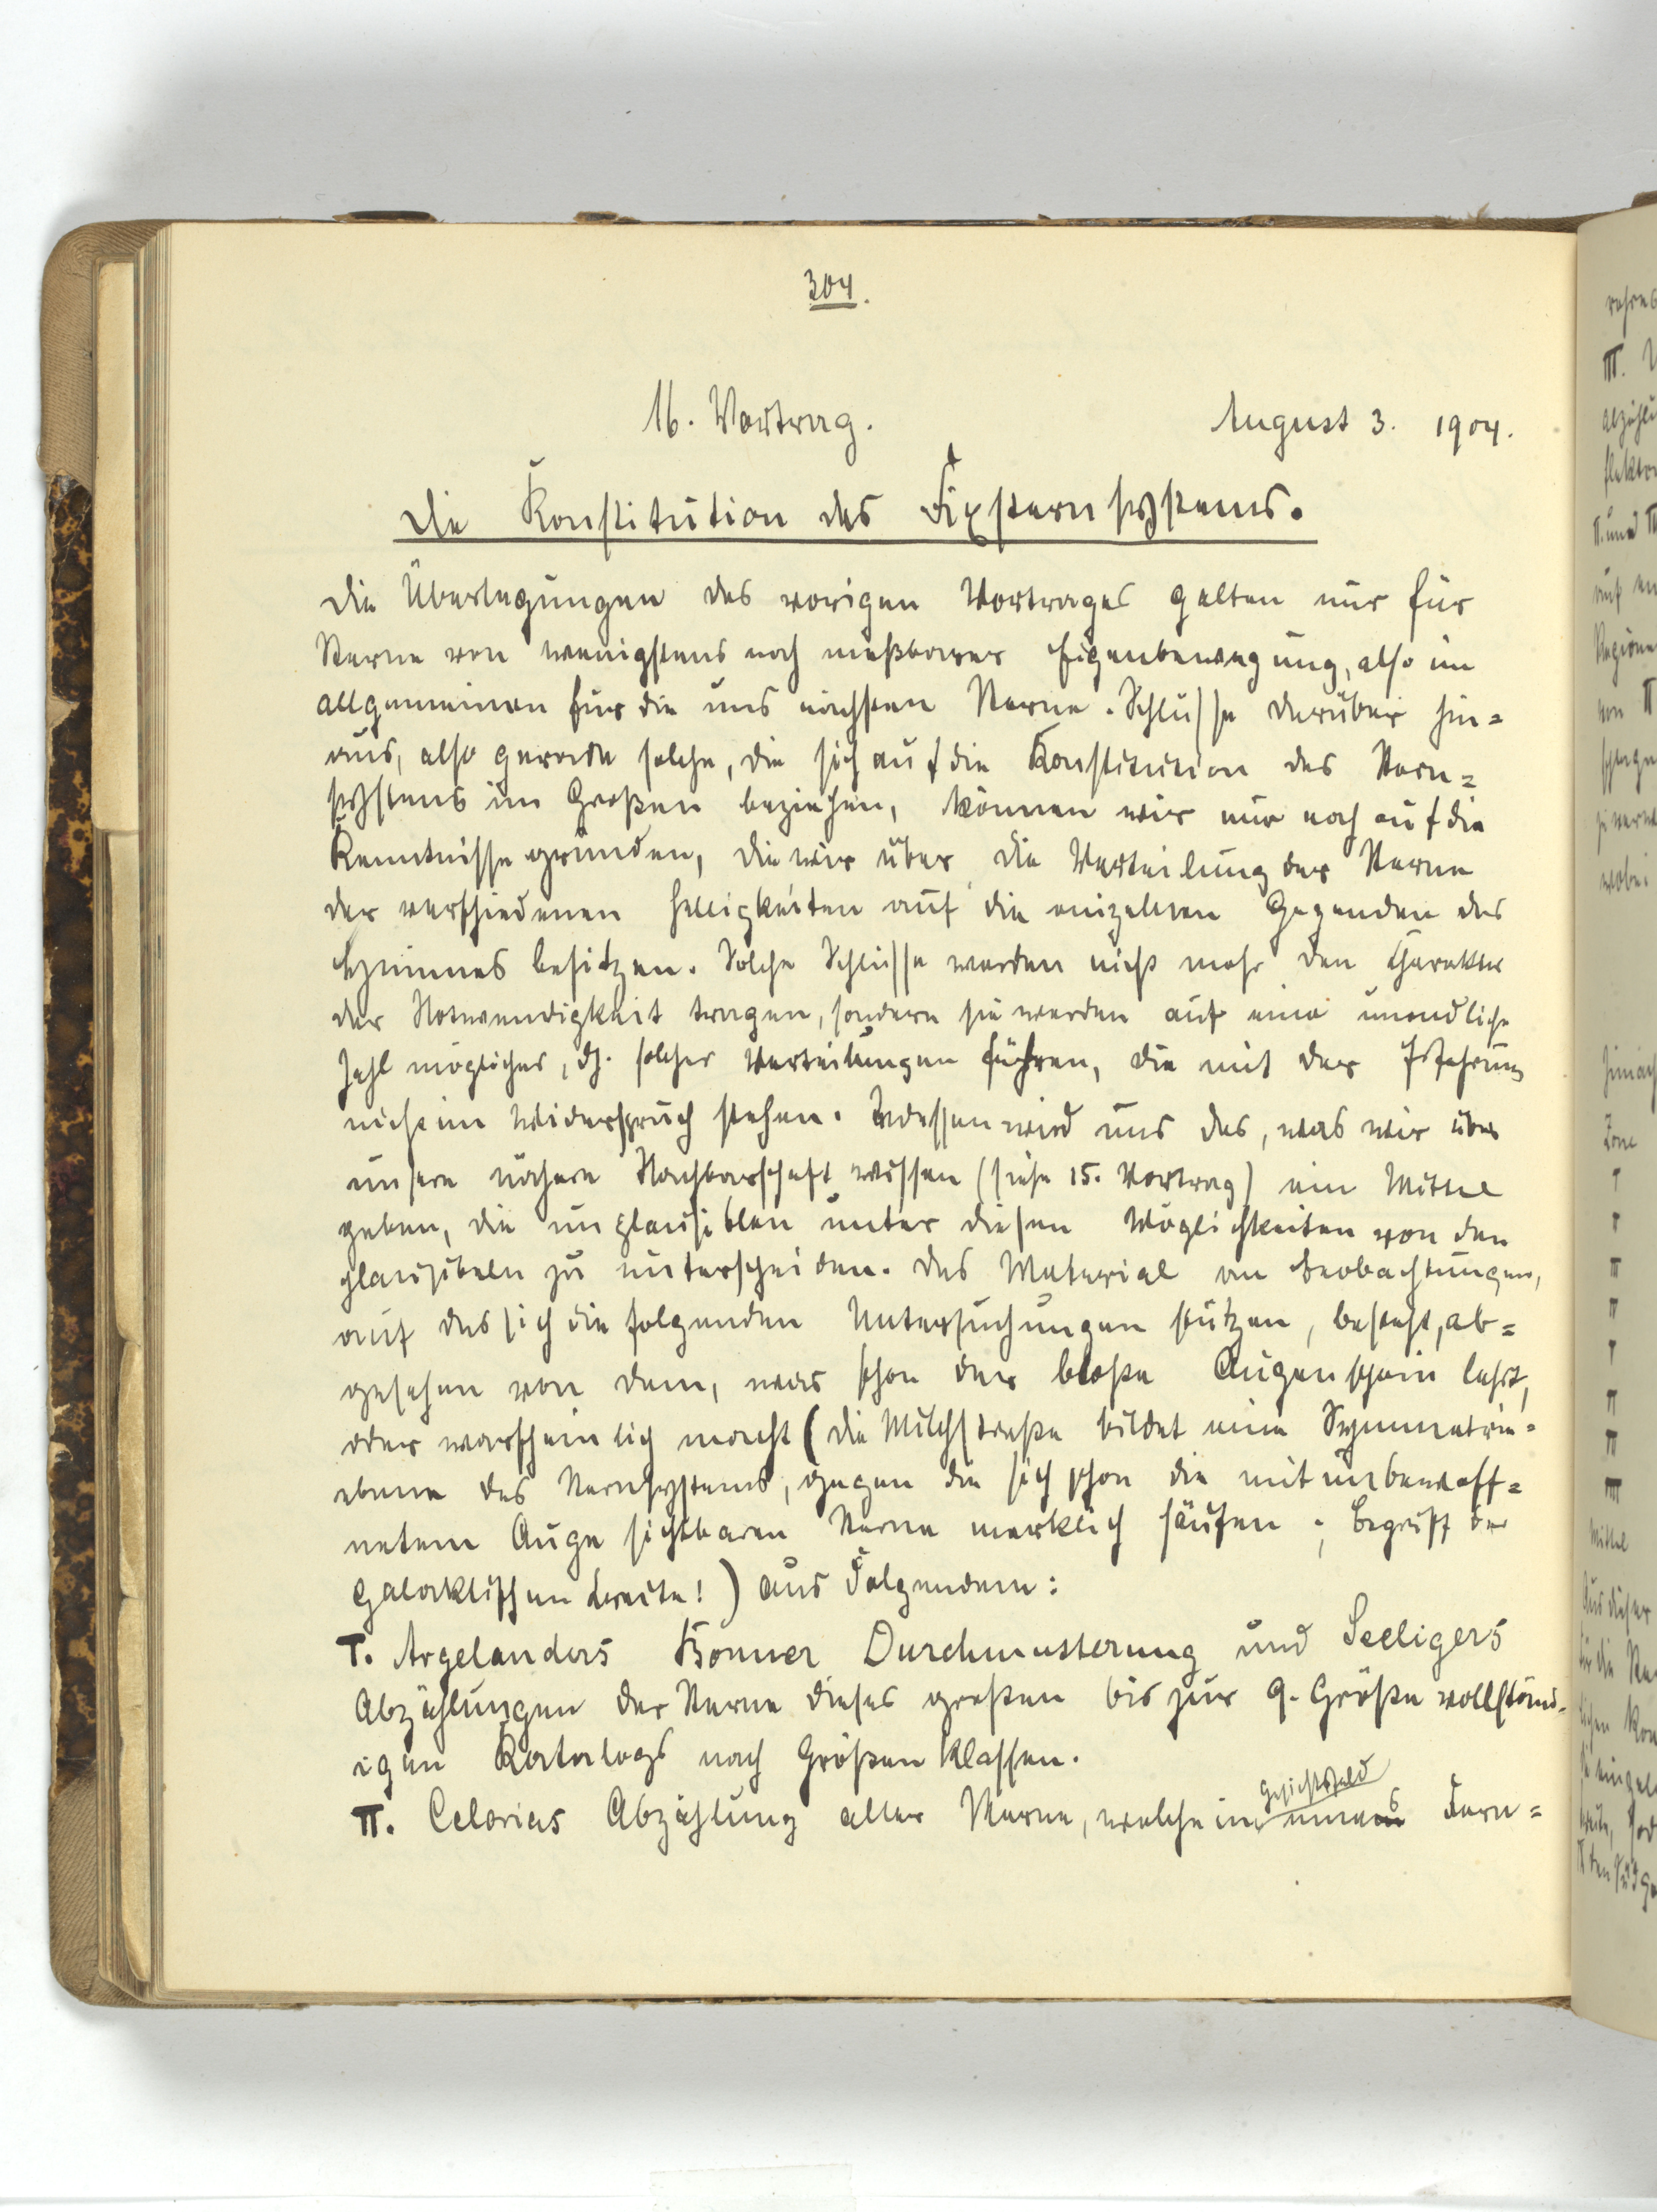 304.
16. Vortrag. August 3. 1904.
Die Konstitution des Fixsternsystems.
Die Überlegungen des vorigen Vortrages gelten nur für
Sterne von wenigstens noch meßbarer Eigenbewegung, also im
allgemeinen für die uns nächsten Sterne. Schlüsse darüber hin=
aus, also gerade solche, die sich auf die Konstitution des Stern=
systems im Großen beziehen, können wir nur noch auf die
Kenntnisse gründen, die wir über die Verteilung der Sterne
der verschiedenen Helligkeiten auf die einzelnen Gegenden des
Himmels besitzen. Solche Schlüsse werden nicht mehr den Charakter
der Notwendigkeit tragen, sondern sie werden auf eine unendliche
Zahl möglicher, dh. solcher Verteilungen führen, die mit der Erfahrung
nicht im Widerspruch stehen. Indessen wird uns das, was wir über
unsere nähere Nachbarschaft wissen (siehe 15. Vortrag) ein Mittel
geben, die unplausiblen unter diesen Möglichkeiten von den
plausibeln zu unterscheiden. Das Material an Beobachtungen,
auf das sich die folgenden Untersuchungen stützen, besteht, ab=
gesehen von dem, was schon der bloße Augenschein lehrt,
oder warscheinlich macht (die Milchstraße bildet eine Symmetrie=
ebene des Sternsystems, gegen die sich schon die mit unbewaff=
netem Auge sichtbaren Sterne merklich häufen; Begriff der
galaktischen Breite!) aus Folgendem:
I. Argelanders Bonner Durchmusterung und Seeligers
Abzählungen der Sterne dieses großen bis zur 9. Größe vollständ=
igen Katalogs nach Größenklassen.
Gesichtsfeld
II. Celorias Abzählung aller Sterne, welche im eines Fern=
rohres
III.
II. und
Zone
Mittel
Aus dieser